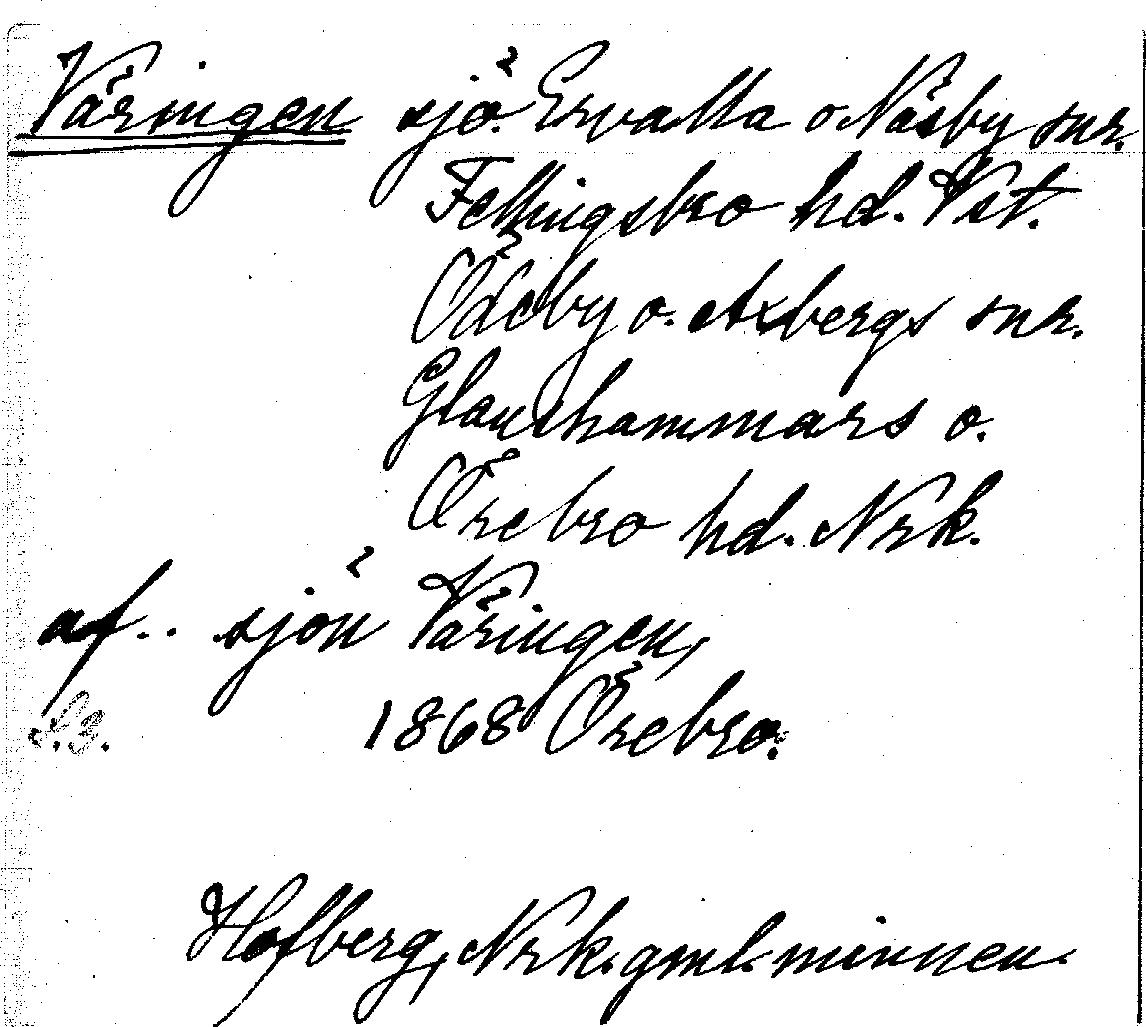 Väringen sjö. Ervalla o Näsby snr.
Fellingsbro hd. Vst.
Ödeby o. Axbergs snr.
Glanshammars o.
Örebro hd. Nrk.
af.. sjön Väringen,
1868 Örebro.
Hofberg, Nrk. gml. minnen.